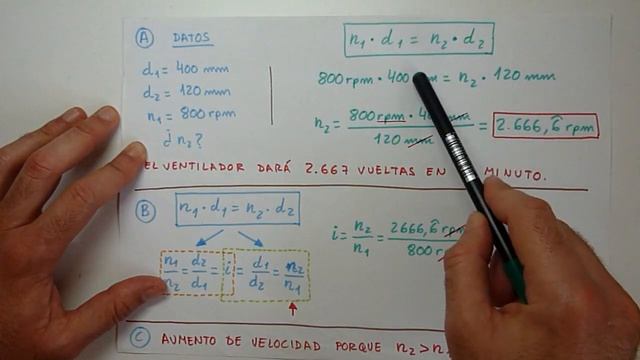 A DATOS
n₁ · d₁ = n₂ · d₂
d₁ = 400 mm
d₂ = 120 mm
n₁ = 800 rpm
¿ n₂?
800 rpm · 400 mm = n₂ · 120 mm
n₂ = 800 rpm · 40 mm / 120 mm = 2.666,6̂ rpm
EL VENTILADOR DARÁ 2.667 VUELTAS EN MINUTO.
B
n₁ · d₁ = n₂ · d₂
n₁/n₂ = d₂/d₁ = i = d₁/d₂ = n₂/n₁
i = n₂/n₁ = 2666,6̂ rpm / 800 r
C AUMENTO DE VELOCIDAD PORQUE n₂ > n